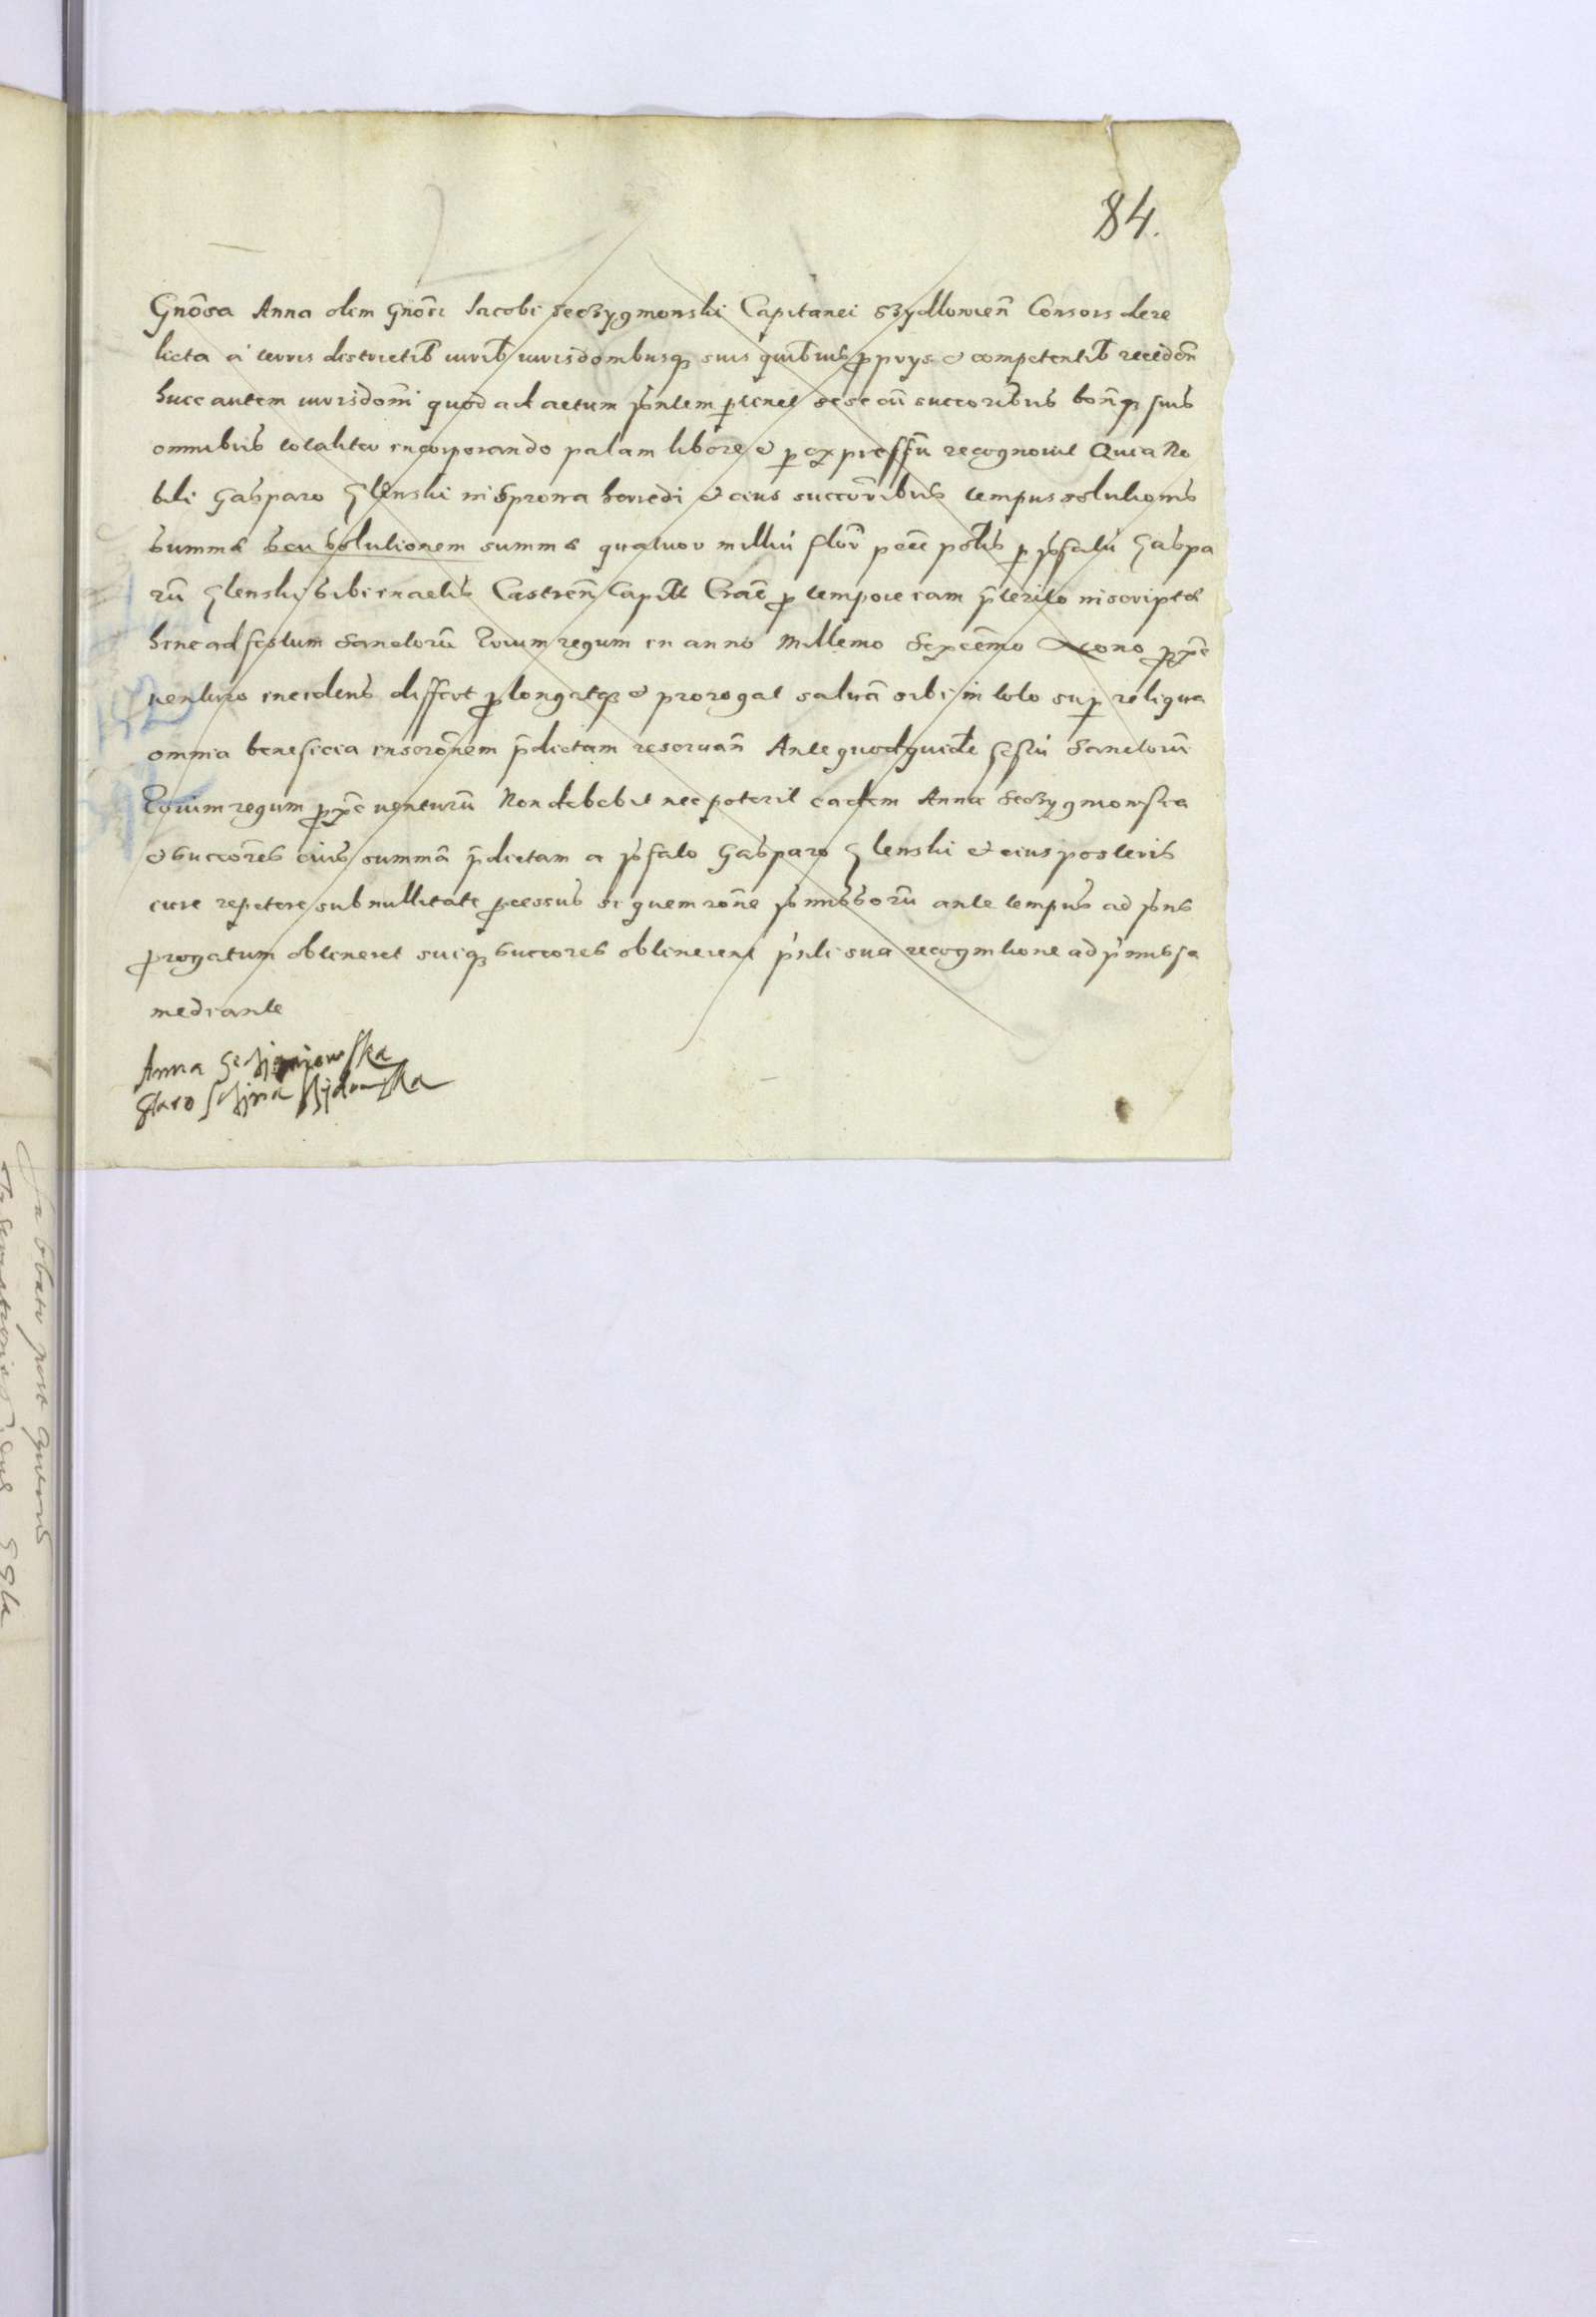 84.
Gnõsa Anna olim Gnõsi Jacobi Seczygmonski Capitanei Szydlovien̄ Consors dere
licta a terris districtib iurib iurisdombusq suis quibuis proprys et competentib receden̄
huic autem iurisdom̄i quod ad actum pñtem pertinet sese cū succoribus bon̄q suis
omnibus totaliter incorporando palam libere et p expressũ recognovit Quia No
bili Gasparo Glenski in heredi et eius succoribus tempus solutionis
summe seu solutionem summe quatuor milliũ flor̄ pec̄ polis p pfatũ Gaspa
rũ Glenski sibi in actis Castren̄ Capitl Crac̄ pro tempore iam pterito inscripte
hinc ad festum Sanctorũ Trium regum in anno Millemo Sexcēmo prox̄e
venturo incidens differt prolongatq et prorogat salvã sibi in toto sup reliqua
omnia beneficia inscrõnem p̄dictam reservan̄ Ante quod quidē festũ Sanctorũ
Trium regum prox̄e venturũ Non debebit nec poterit eadem Anna Seczygmonska
et succores eius summã p̄dictam a pfato Gasparo Glenski et eius posteris
iure repetere sub nullitate processus si quem rōne pmissorũ ante tempus ad pñs
prorogatum obtineret suiq succores obtinerent p̄nti sua recognitione ad p̄missa
mediante
Anna Seczigniowska
Starosczina Szidowska